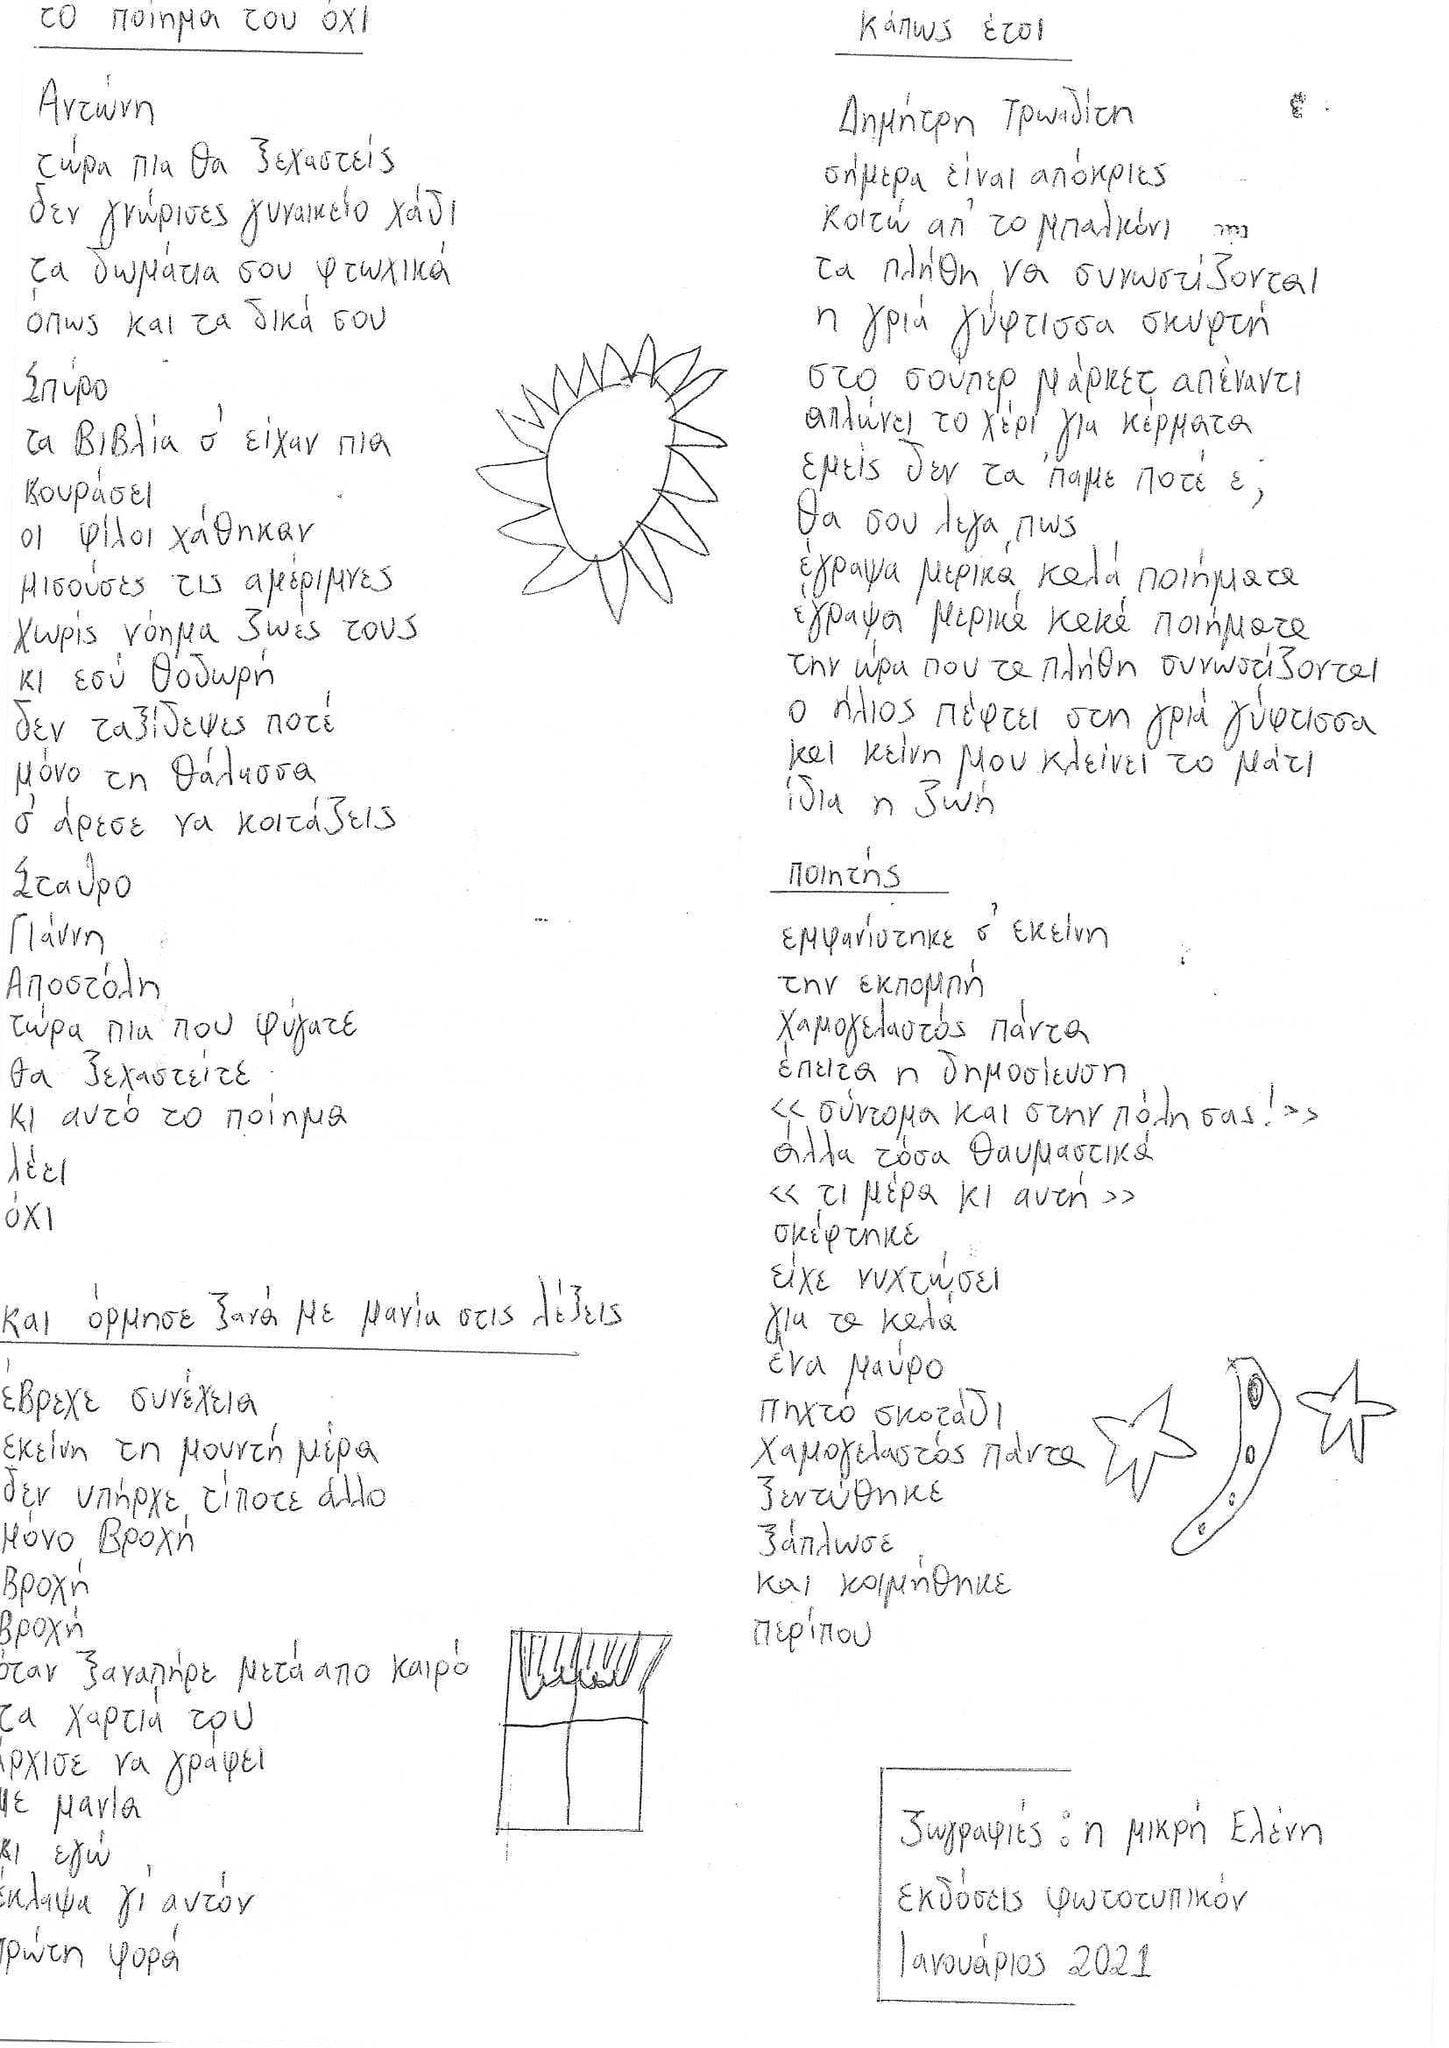 το ποίημα του όχι
Αντώνη
τώρα πια θα ξεχαστείς
δεν γνώρισες γυναικείο χάδι
τα δωμάτια σου φτωχικά
όπως και τα δικά σου
Σπύρο
τα βιβλία σ' είχαν πια
κουράσει
οι φίλοι χάθηκαν
μισούσες τις αμέριμνες
χωρίς νόημα ζωές τους
κι εσύ Θοδωρή
δεν ταξίδεψες ποτέ
μόνο τη θάλασσα
σ' άρεσε να κοιτάζεις
Σταύρο
Γιάννη
Αποστόλη
τώρα πια που φύγατε
θα ξεχαστείτε
κι αυτό το ποίημα
λέει
όχι
και όρμησε ξανά με μανία στις λέξεις
έβρεχε συνέχεια
εκείνη τη μουντή μέρα
δεν υπήρχε τίποτε άλλο
μόνο βροχή
βροχή
βροχή
όταν ξαναπήρε μετά απο καιρό
τα χαρτιά του
άρχισε να γράφει
με μανία
κι εγώ
έκλαψα γι' αυτόν
πρώτη φορά
κάπως έτσι
Δημήτρη Τρωαδίτη
σήμερα είναι απόκριες
κοιτώ απ' το μπαλκόνι
τα πλήθη να συνωστίζονται
η γριά γύφτισσα σκυφτή
στο σούπερ μάρκετ απέναντι
απλώνει το χέρι για κέρματα
εμείς δεν τα 'παμε ποτέ ε;
θα σου λεγα πως
έγραψα μερικά καλά ποιήματα
έγραψα μερικά κακά ποιήματα
την ώρα που τα πλήθη συνωστίζονται
ο ήλιος πέφτει στη γριά γύφτισσα
και κείνη μου κλείνει το μάτι
ίδια η ζωή
ποιητής
εμφανίστηκε σ' εκείνη
την εκπομπή
χαμογελαστός πάντα
έπειτα η δημοσίευση
<< σύντομα και στην πόλη σας! >>
άλλα τόσα θαυμαστικά
<< τι μέρα κι αυτή >>
σκέφτηκε
είχε νυχτώσει
για τα καλά
ένα μαύρο
πηχτό σκοτάδι
χαμογελαστός πάντα
ξεντύθηκε
ξάπλωσε
και κοιμήθηκε
περίπου
ζωγραφιές : η μικρή Ελένη
εκδόσεις φωτοτυπικόν
Ιανουάριος 2021